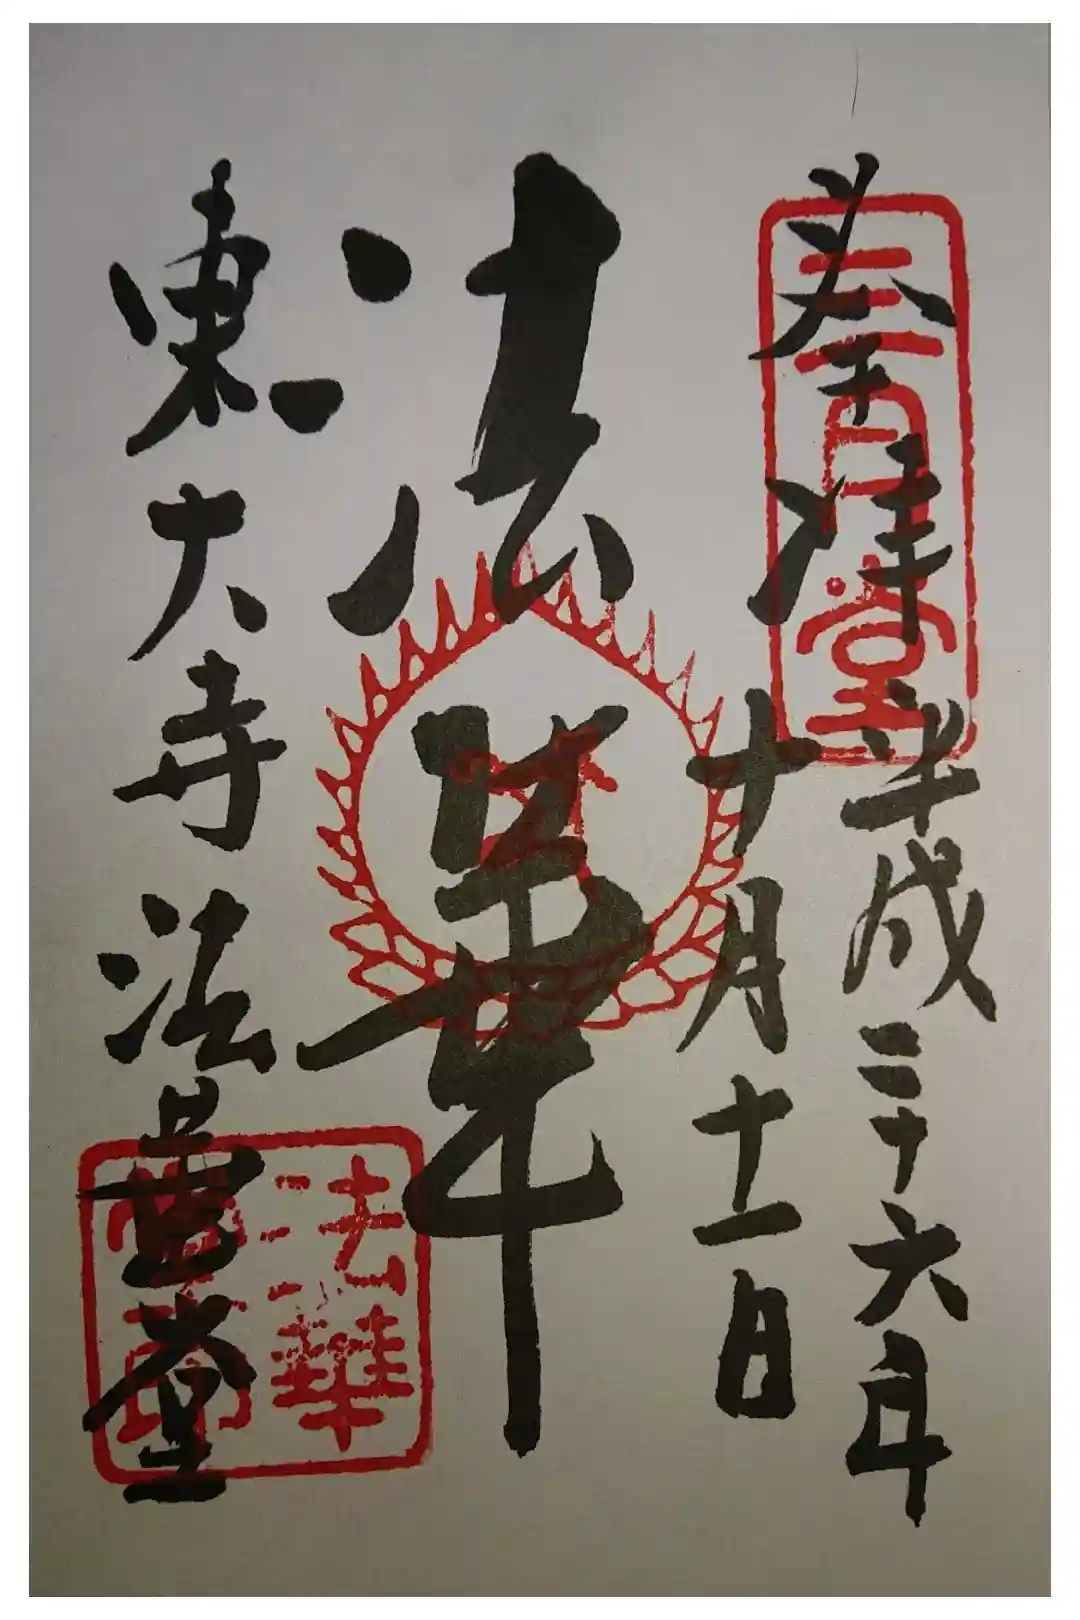 奉拝
三月堂
平成二十六年
十月十一日
法華
東大寺法華堂
法華